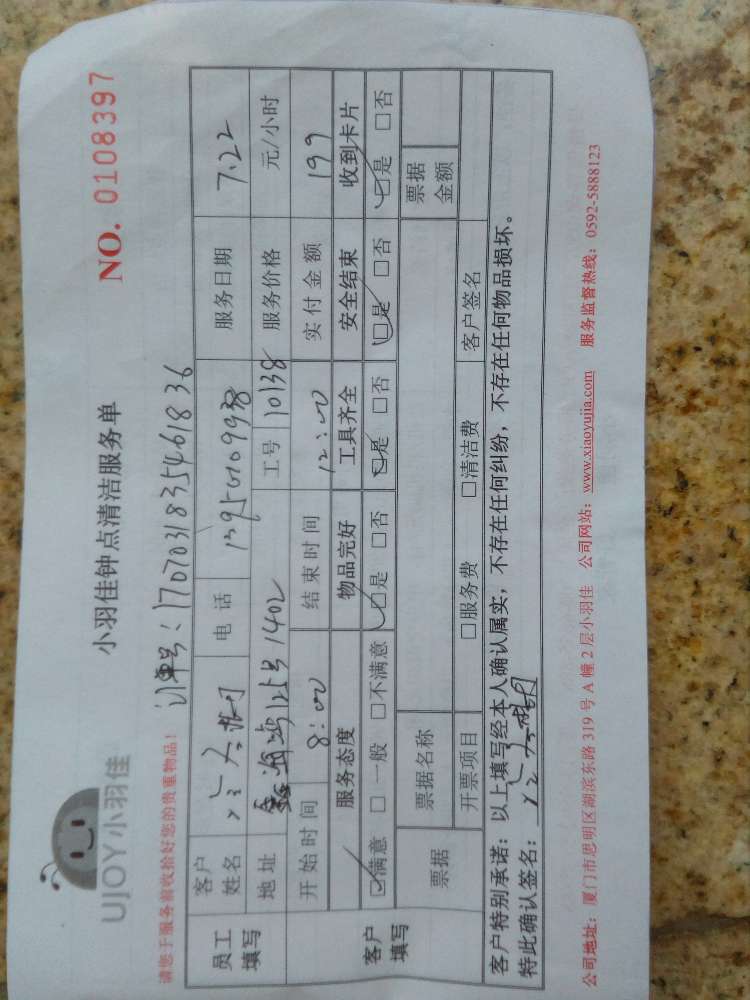 UJOY小羽佳
小羽佳钟点清洁服务单
NO. 0108397
请您于服务前收拾好您的贵重物品!
订单号:170703183546 1836
员工填写
客户姓名 电话 服务日期 7.22
地址 125号1402 工号 10138 服务价格 元/小时
开始时间 8:00 结束时间 12:00 实付金额 199
客户填写
服务态度 物品完好 工具齐全 安全结束 收到卡片
☑满意 □一般 □不满意 ☑是 □否 ☑是 □否 ☑是 □否 ☑是 □否
票据 票据名称 票据金额
开票项目 □服务费 □清洁费 客户签名
客户特别承诺:以上填写经本人确认属实,不存在任何纠纷,不存在任何物品损坏。
特此确认签名:
公司地址:厦门市思明区湖滨东路 319 号 A 幢 2 层小羽佳 公司网站:www.xiaoyujia.com 服务监督热线:0592-5888123